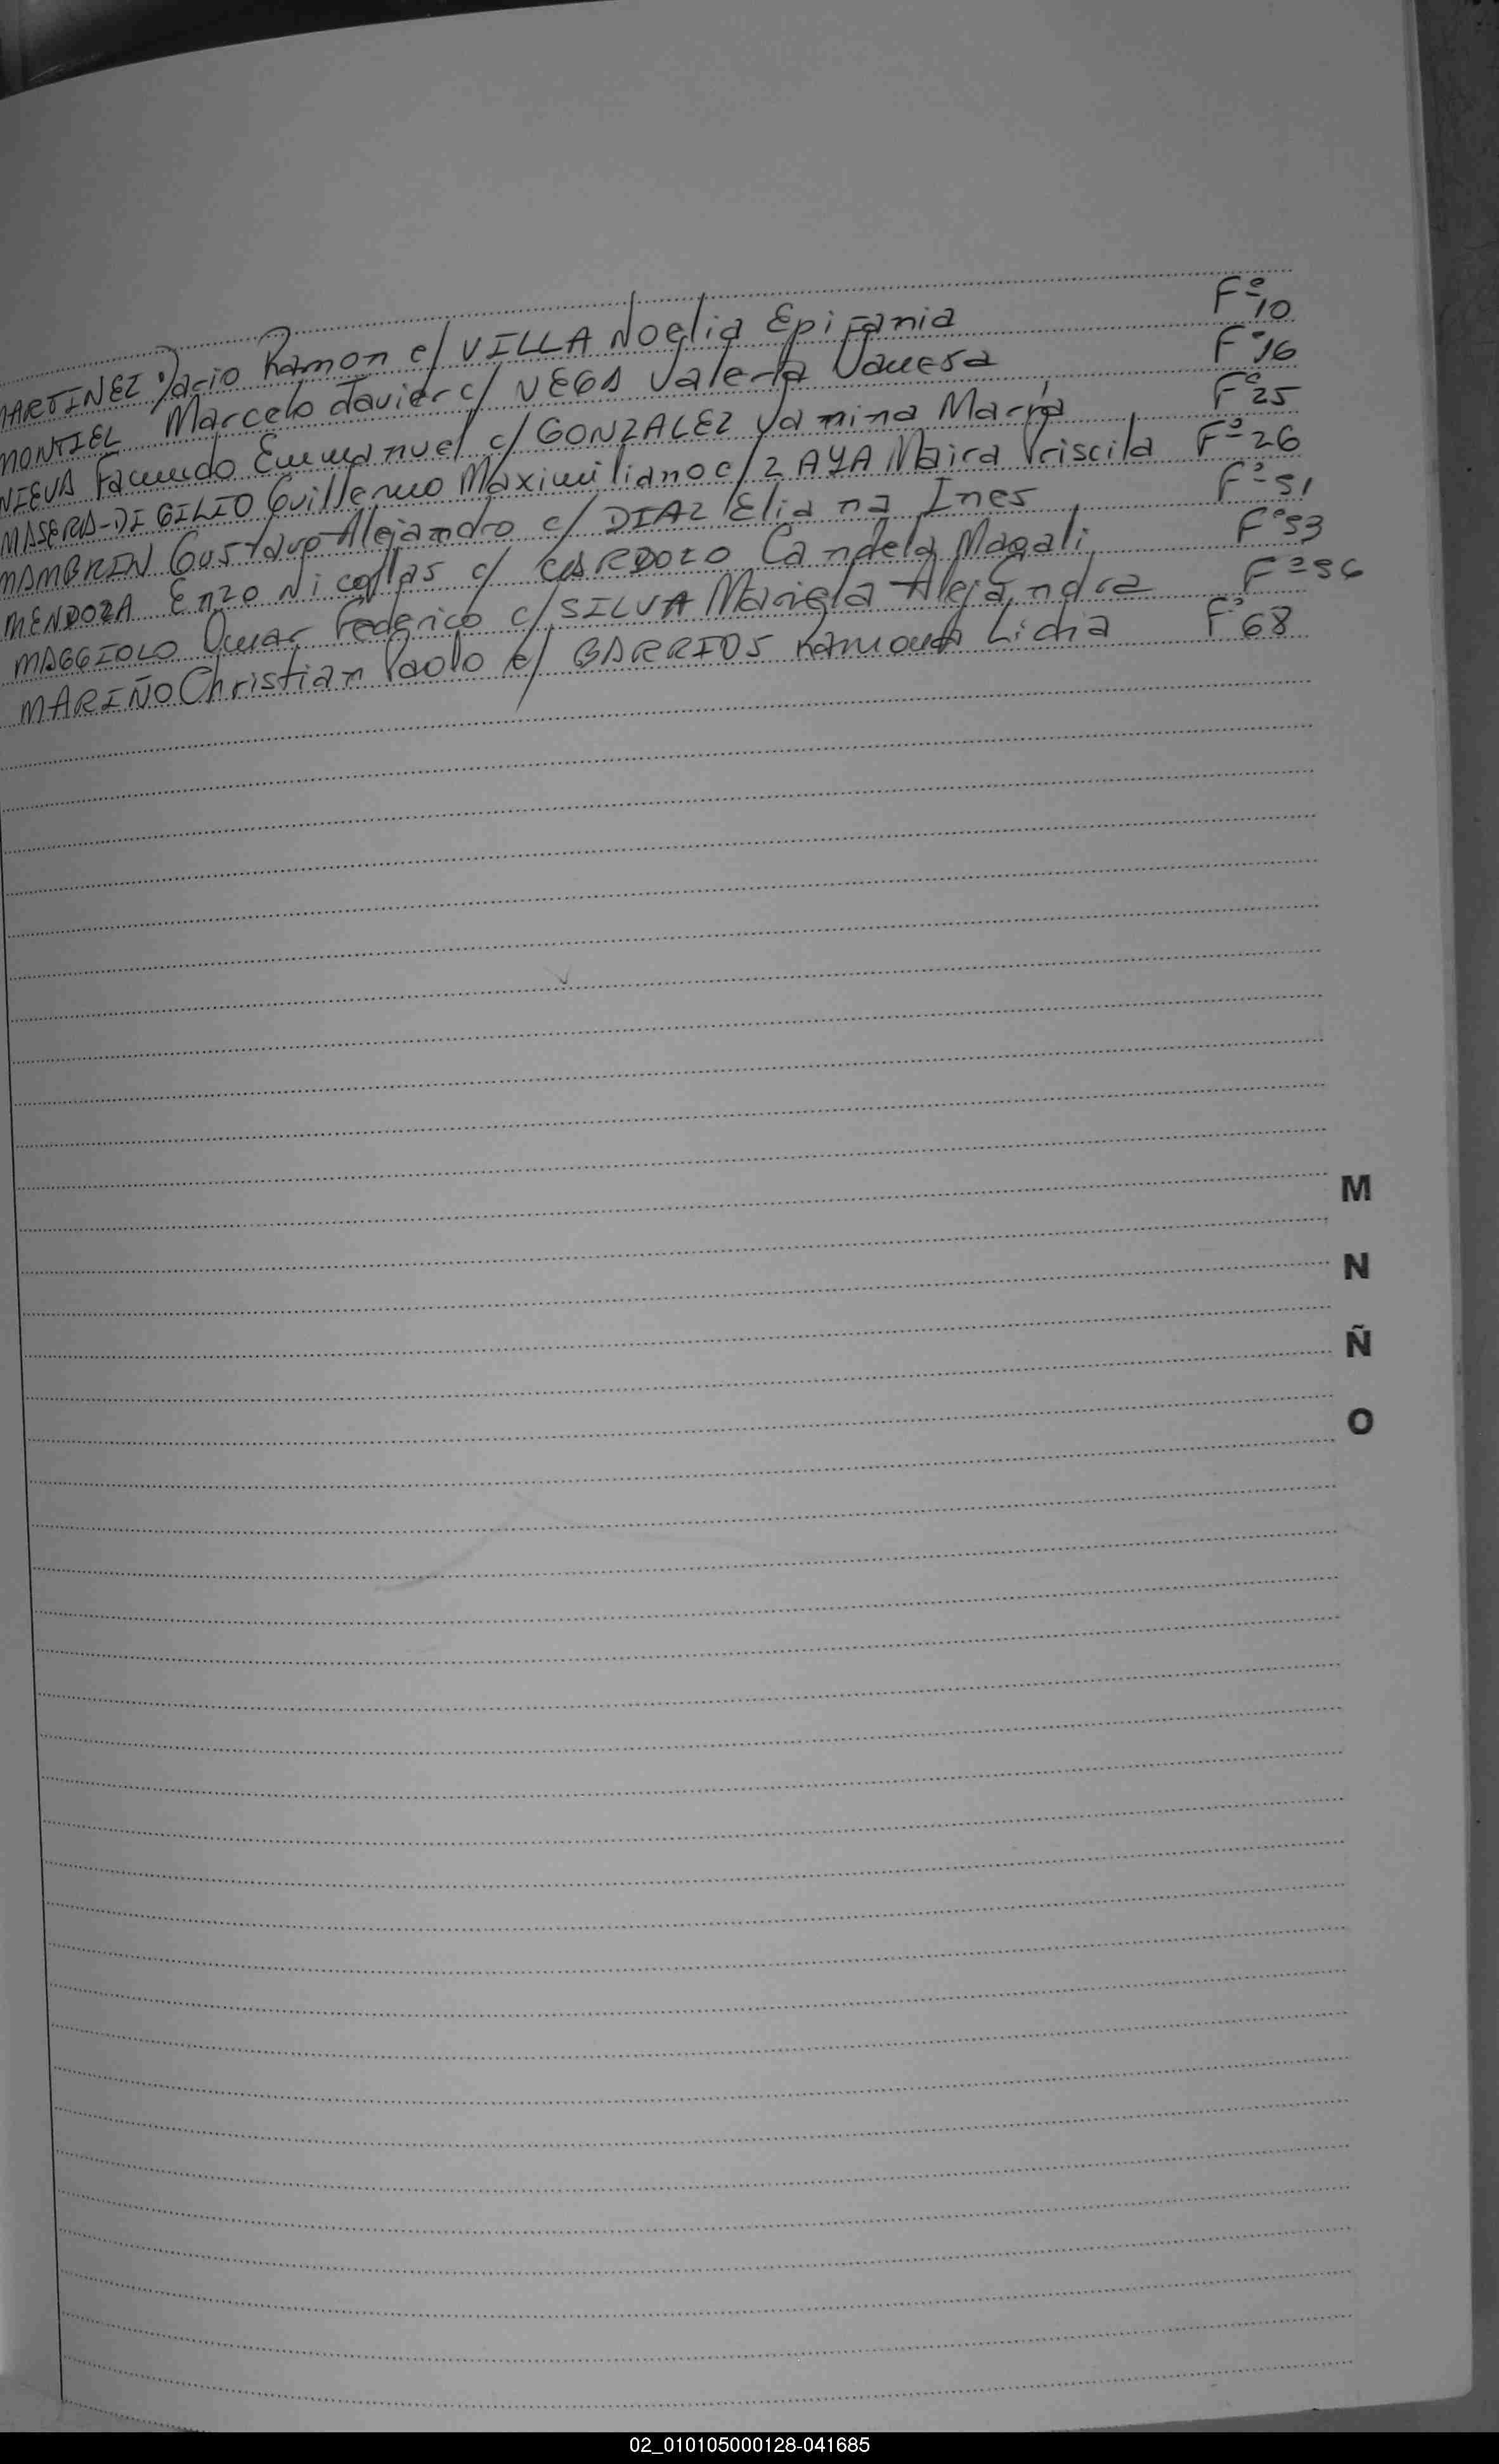 MARTINEZ Dario Ramon c/ VILLA Noelia Epifania Fº 10
MONTIEL Marcelo Javier c/ VEGA Valeria Vanesa Fº 16
NIEVA Facundo Emmanuel c/ GONZALEZ Yamina María Fº 25
MASERA-DI GILIO Guillermo Maximiliano c/ ZAYA Maira Priscila Fº 26
MAMBRIN Gustavo Alejandro c/ DIAZ Eliana Ines Fº 51
MENDOZA Enzo Nicollas c/ CARDOZO Candela Magali Fº 53
MAGGIOLO Omar Federico c/ SILVA Mariela Alejandra Fº 56
MARIÑO Christian Paolo c/ BARRIOS Ramona Lidia Fº 68
M
N
Ñ
O
02_010105000128-041685